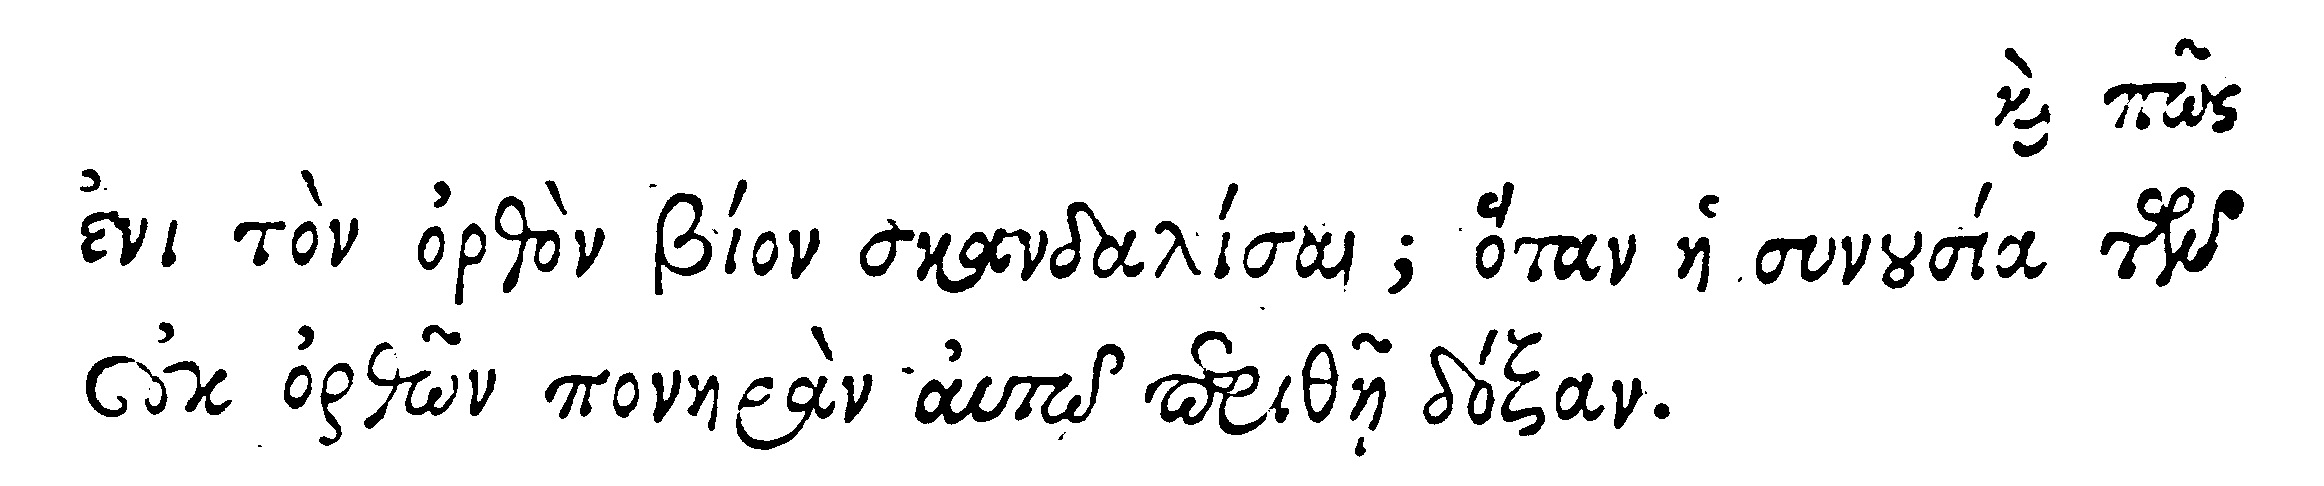 ϗ̀ πῶς
ἐνι τὸν ὀρθὸν βίον σκανδαλίσαι; ὅταν ἡ συνουσία τῶν
οὐκ ὀρθῶν πονηρὰν ἀυτῳ περιθῇ δόξαν.